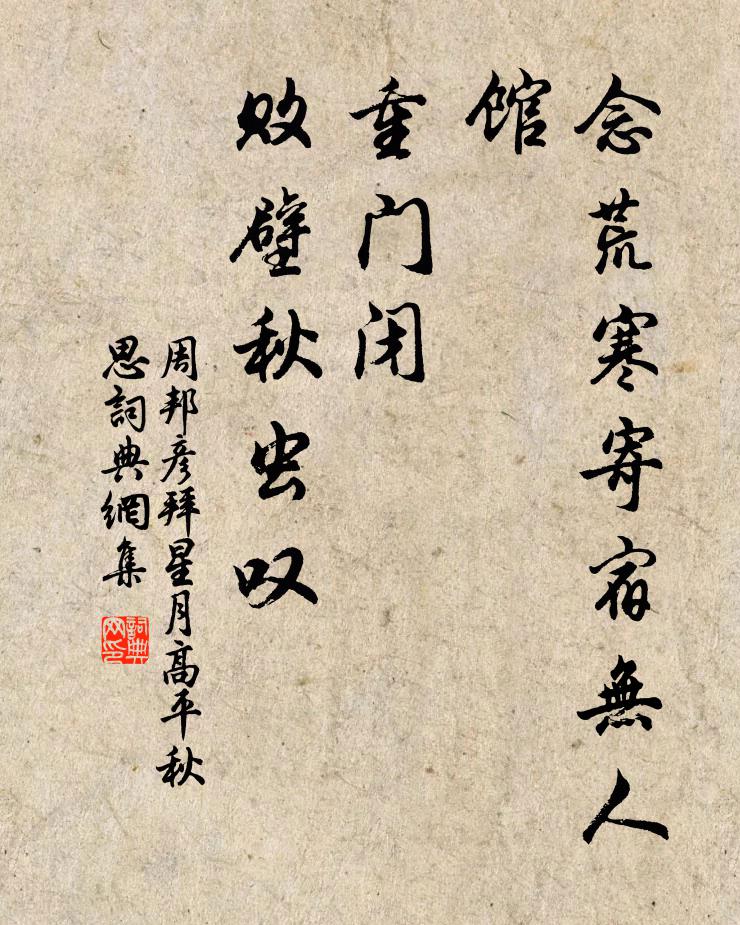 念荒寒寄宿無人
馆
重门闭
败壁秋虫叹
周邦彦拜星月高平秋
思詞典網集
詞典
网印